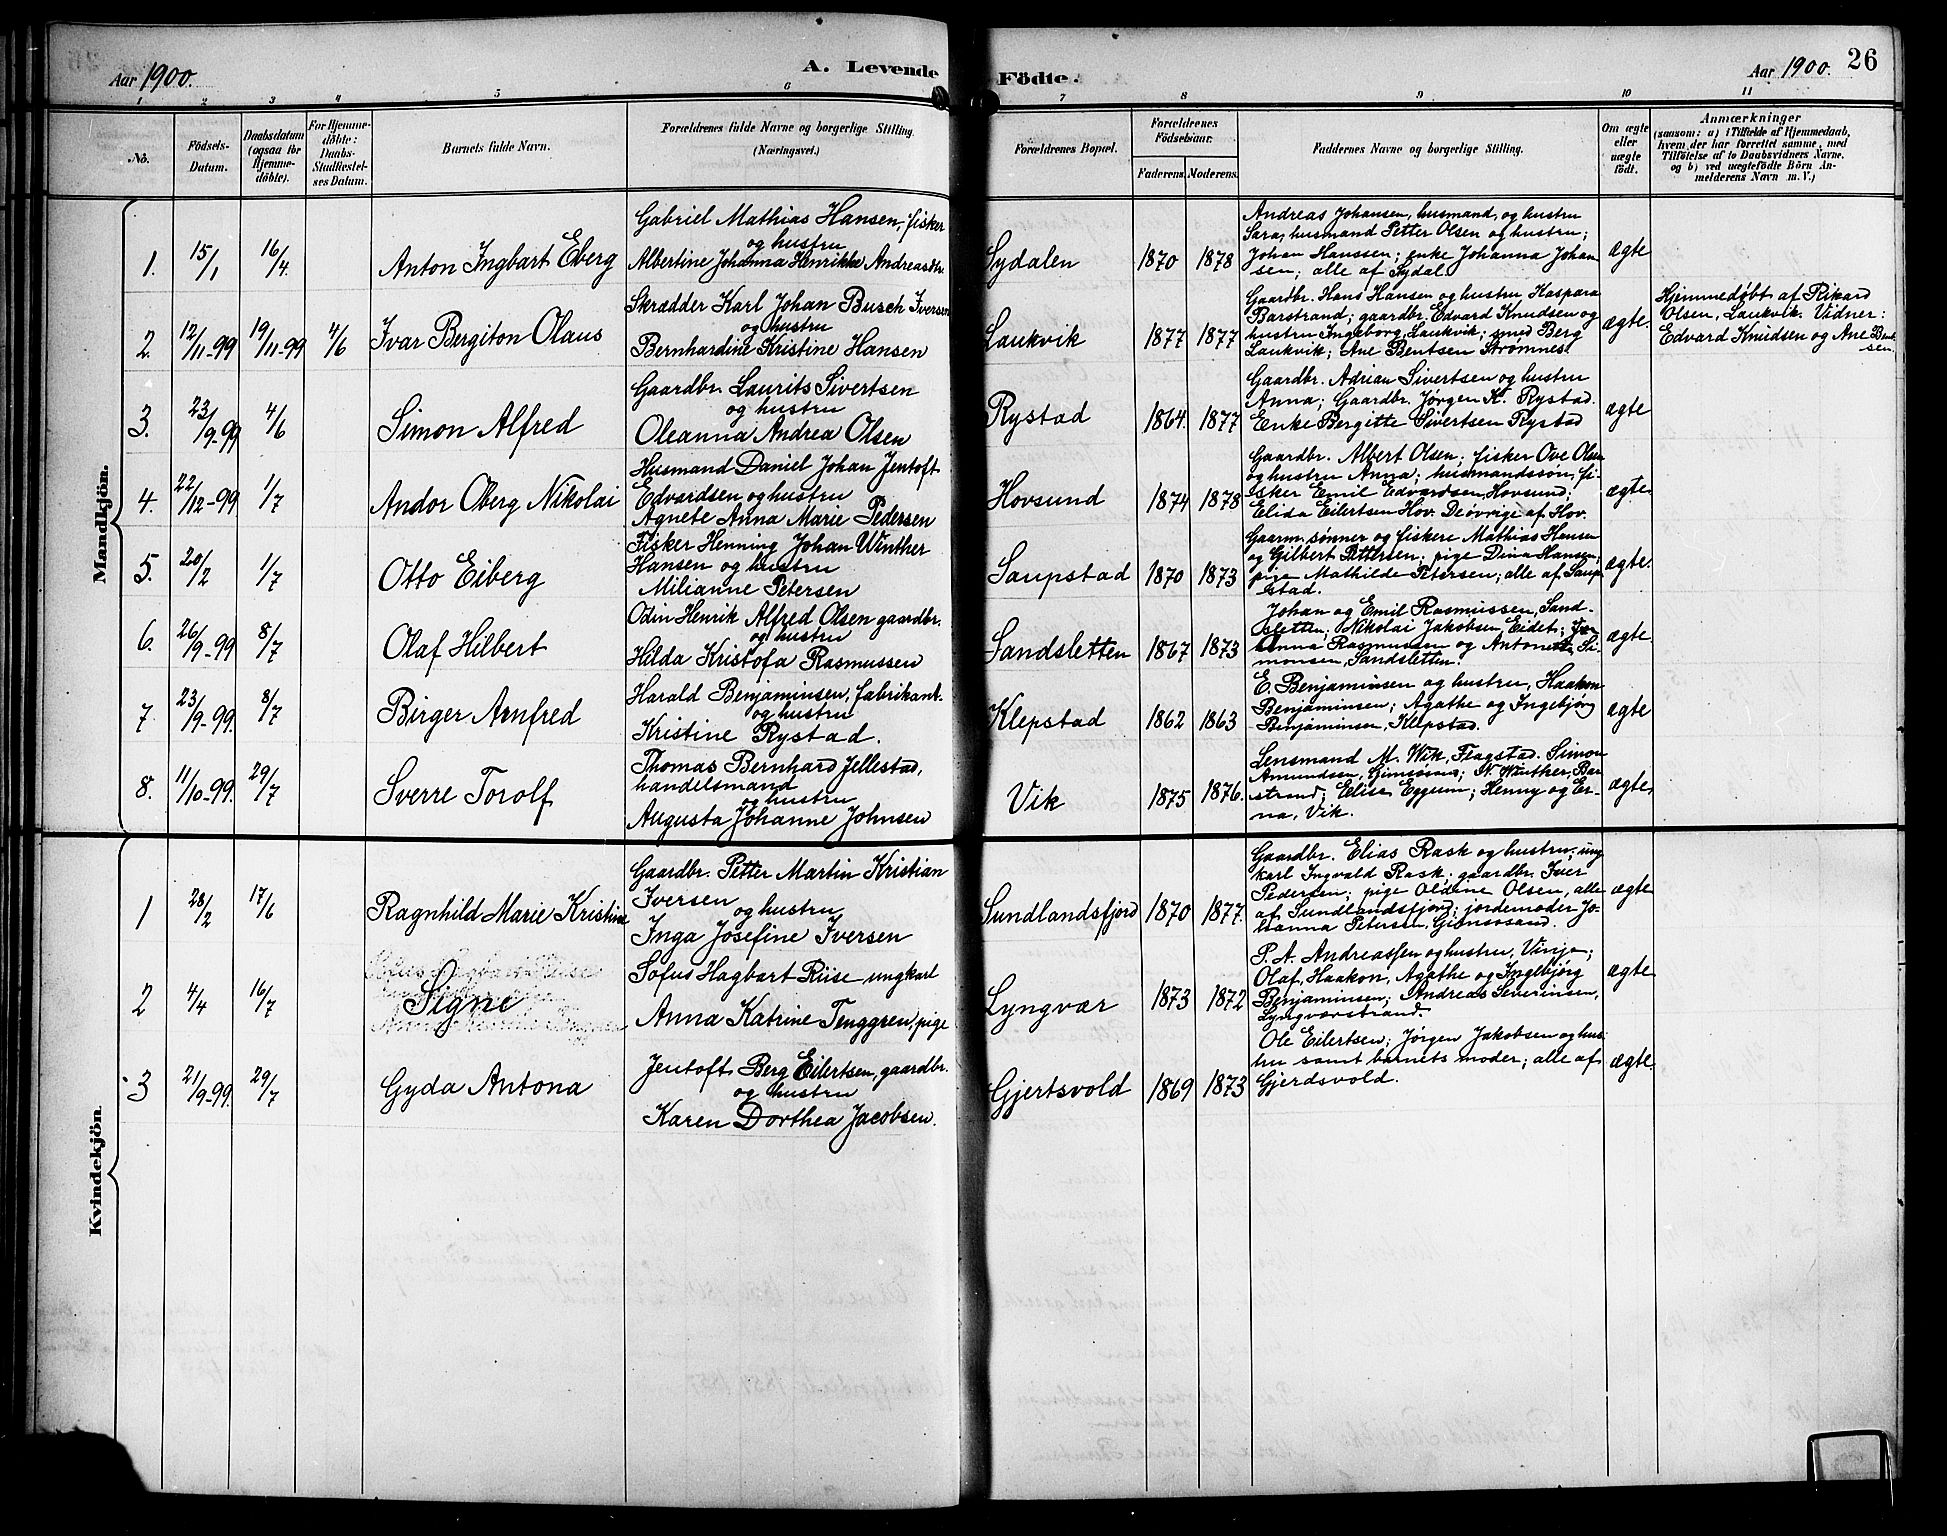 Aar 1900.
A. Levende
Födte.
Aar 1900.
26
1 2 3 4 5 6 7 8 9 10 11
No.
Födsels-
Datum.
Daabsdatum
(ogsaa for
Hjemme-
döbte).
For Hjemme-
döbte:
Daabs-
Stadfæstel-
ses Datum.
Barnets fulde Navn.
Forældrenes fulde Navne og borgerlige Stilling.
(Næringsvei.)
Forældrenes Bopæl.
Forældrenes
Födselsaar.
Faderens. Moderens.
Faddernes Navne og borgerlige Stilling.
Om ægte
eller
uægte
födt.
Anmærkninger
(saasom: a) i Tilfælde af Hjemmedaab,
hvem der har forrettet samme, med
Tilföielse af to Daabsvidners Navne.
og b) ved uægtefödte Börn An-
melderens Navn m. V.)
Mandkjön.
1. 15/1 16/4 Anton Ingbart Eberg
Gabriel Mathias Hansen, fisker
og hustru
Albertine Johanna Henrikke Andreasdtr.
Sydalen 1870 1878
Andreas Johansen, husmand, og hustru
Sara, husmand Petter Olsen og hustru;
Johan Hanssen; enke Johanna Johan
sen; alle af Sydal.
ægte
2. 12/11-99 19/11-99 4/6 Ivar Bergiton Olaus
Skrædder Karl Johan Busch Iversen
og hustru
Bernhardine Kristine Hansen
Laukvik 1877 1877
Gaardbr. Hans Hansen og hustru, Kaspara
Barstrand; gaardbr. Edvard Knudsen og
hustru Ingeborg, Laukvik; smed Berg
Laukvik; Ane Bentsen Strømnes.
ægte.
Hjemmedøbt af Rikard
Olsen, Laukvik. Vidner:
Edvard Knudsen og Ane Bent-
sen.
3. 23/9-99 4/6 Simon Alfred
Gaardbr. Laurits Sivertsen
og hustru
Oleanna Andrea Olsen
Rystad 1864. 1877
Gaardbr. Adrian Sivertsen og hustru
Anna; Gaardbr. Jørgen K. Rystad.
Enke Bergitte Sivertsen Rystad
ægte
4. 22/12-99 1/7 Andor Oberg Nikolai
Husmand Daniel Johan Jentoft
Edvardsen og hustru
Agnete Anna Marie Pedersen
Hovsund 1874 1878
Gaardbr. Albert Olsen; fisker Ove Olsen
og hustru Anna; husmandssøn, fi-
sker Emil Edvardsen, Hovsund;
Elida Eilertsen Hov. De øvrige af Hov.
ægte
5. 20/2 1/7 Otto Eiberg
Fisker Henning Johan Winther
Hansen og hustru
Milianne Petersen
Saupstad 1870 1873
Gaarm. sønner og fiskere Mathias Hansen
og Gilbert Pettersen; pige Dina Hansen;
pige Mathilde Petersen; alle af Saup
stad.
ægte.
6. 26/9-99 8/7 Olaf Hilbert
Odin Henrik Alfred Olsen gaardbr.
og hustru
Hilda Kristofa Rasmussen
Sandsletten 1867 1873
Johan og Emil Rasmussen, Sand-
sletten; Nikolai Jakobsen, Eidet;
Anna Rasmussen og Antonette Si-
monsen, Sandsletten.
ægte
7. 23/9-99. 8/7 Birger Arnfred
Harald Benjaminsen, fabrikant
og hustru
Kristine Rystad.
Klepstad 1862 1863
E. Benjaminsen og hustru, Haakon
Benjaminsen; Agathe og Ingebjørg
Benjaminsen, Klepstad.
ægte
8. 11/10-99. 29/7 Sverre Torolf
Thomas Bernhard Jellestad,
handelsmand
og hustru
Augusta Johanne Johnsen
Vik 1875 1876.
Lensmand M. Wik, Flagstad. Simon
Amundsen, Gimsøsand; N. Winther, Bar
strand; Elise Eggum; Henny og Er-
na, Vik.
ægte,
Kvindekjön.
1 28/2 17/6 Ragnhild Marie Kristine
Gaardbr. Petter Martin Kristian
Iversen
og hustru
Inga Josefine Iversen
Sundlandsfjord 1870 1877.
Gaardbr. Elias Rask og hustru; ung
karl Ingvald Rask; gaardbr. Iver
Pedersen; pige Oldine Olsen, alle
af Sundlandsfjord; jordemoder Jo-
hanna Petersen, Gimsøsand.
ægte
2 4/4 16/7 Signe
Sofus Hagbart Riise ungkarl
Anna Katrine Tenggren, pige
Lyngvær 1873 1872
P. A. Andreassen og hustru, Vinje;
Olaf, Haakon, Agathe og Ingebjørg
Benjaminsen; Andreas Severinsen,
Lyngværstrand.
ægte
3 21/9-99. 29/7 Gyda Antona
Jentoft Berg Eilertsen, gaardbr.
og hustru
Karen Dorthea Jacobsen.
Gjertsvold 1869 1873
Ole Eilertsen; Jørgen Jakobsen og hus-
tru samt barnets moder; alle af
Gjerdsvold.
ægte